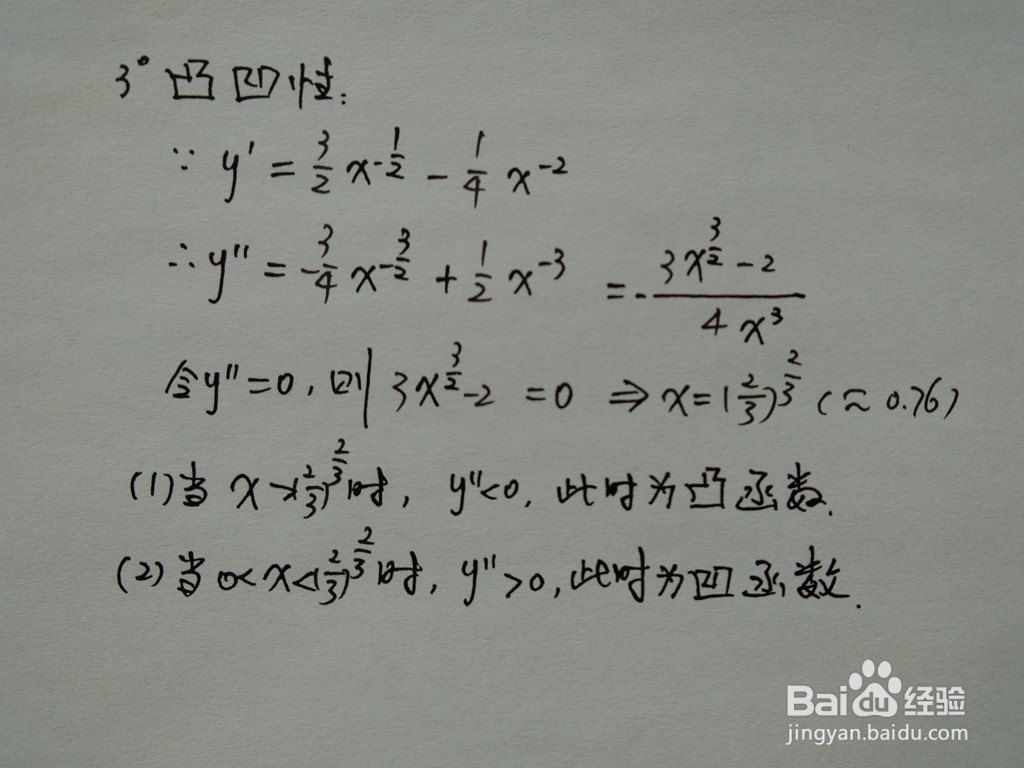 3° 凸凹性:
∵ y' = 3/2 x^(-1/2) - 1/4 x^(-2)
∴ y'' = -3/4 x^(-3/2) + 1/2 x^(-3) = -(3x^(3/2) - 2)/(4x^3)
令y''=0, 则 3x^(3/2) - 2 = 0 ⇒ x = (2/3)^(2/3) (≈0.76)
(1)当 x>(2/3)^(2/3)时, y''<0, 此时为凸函数.
(2)当 0<x<(2/3)^(2/3)时, y''>0, 此时为凹函数.
Baidu经验
jingyan.baidu.com